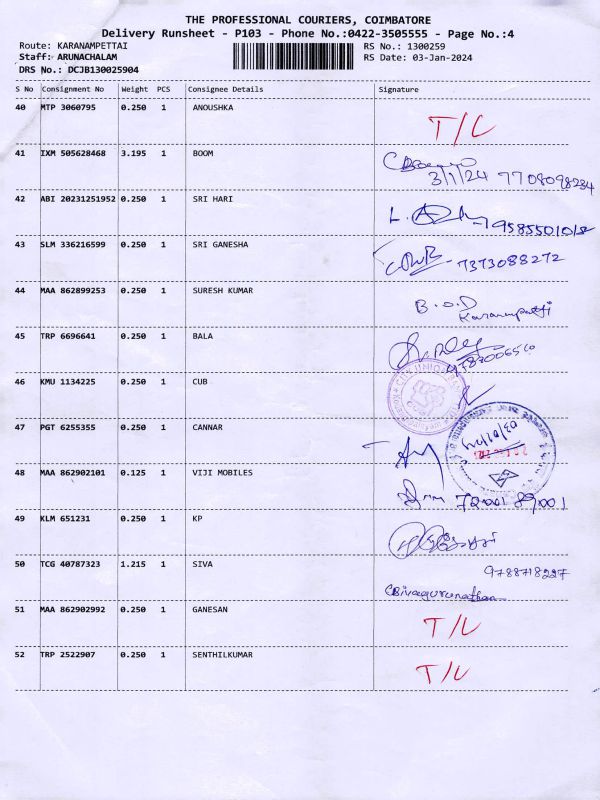 THE PROFESSIONAL COURIERS, COIMBATORE
Delivery Runsheet - P103 - Phone No.:0422-3505555 - Page No.:4
Route: KARANAMPETTAI RS No.: 1300259
Staff: ARUNACHALAM RS Date: 03-Jan-2024
DRS No.: DCJB130025904
S No Consignment No Weight PCS Consignee Details Signature
40 MTP 3060795 0.250 1 ANOUSHKA
T/L
41 IXM 505628468 3.195 1 BOOM
3/1/24 7708098234
42 ABI 20231251952 0.250 1 SRI HARI
L.
9585501012
43 SLM 336216599 0.250 1 SRI GANESHA
7373088272
44 MAA 862899253 0.250 1 SURESH KUMAR
B.O.D
45 TRP 6696641 0.250 1 BALA
46 KMU 1134225 0.250 1 CUB
47 PGT 6255355 0.250 1 CANNAR
03/01/24
48 MAA 862902101 0.125 1 VIJI MOBILES
49 KLM 651231 0.250 1 KP
50 TCG 40787323 1.215 1 SIVA
9788718227
Sivagurunathan
51 MAA 862902992 0.250 1 GANESAN
T/L
52 TRP 2522907 0.250 1 SENTHILKUMAR
T/L